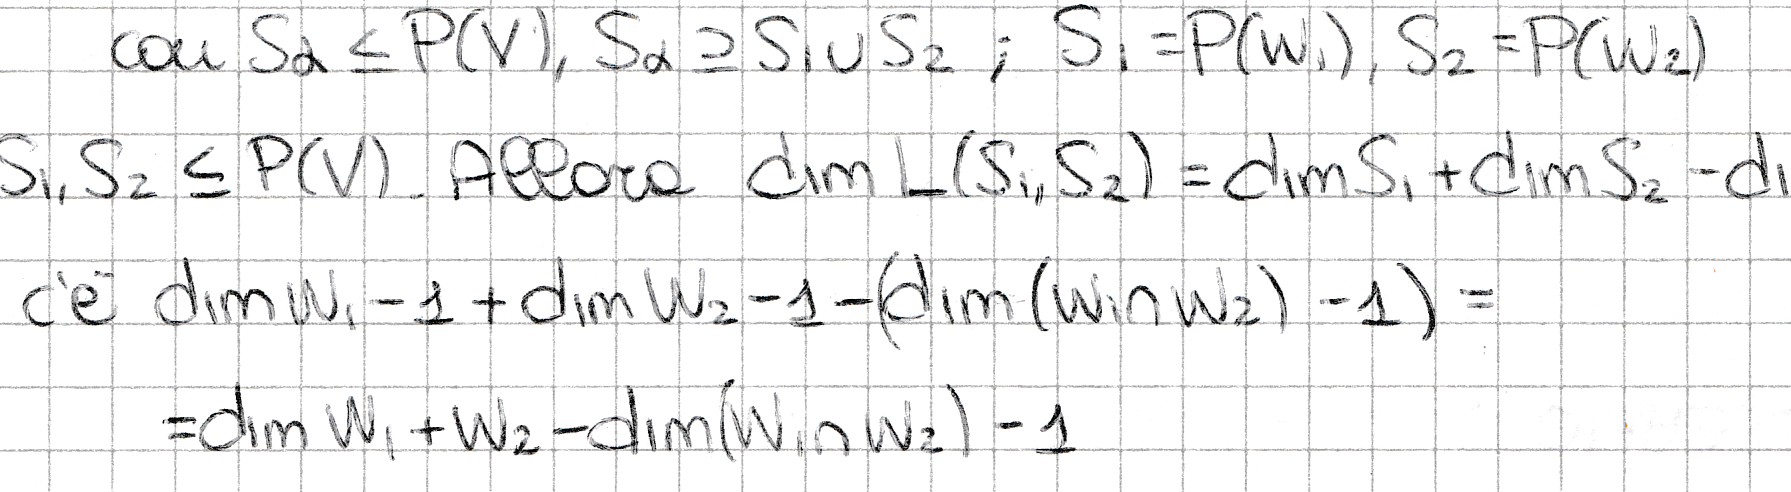 con Sα ≤ P(V), Sα ⊇ S₁∪S₂ ; S₁=P(W₁), S₂=P(W₂)
S₁, S₂ ≤ P(V). Allora dim L(S₁, S₂) = dim S₁ + dim S₂ - di
c'è dim W₁ - 1 + dim W₂ - 1 - (dim (W₁∩W₂) - 1) =
= dim W₁ + W₂ - dim(W₁∩W₂) - 1